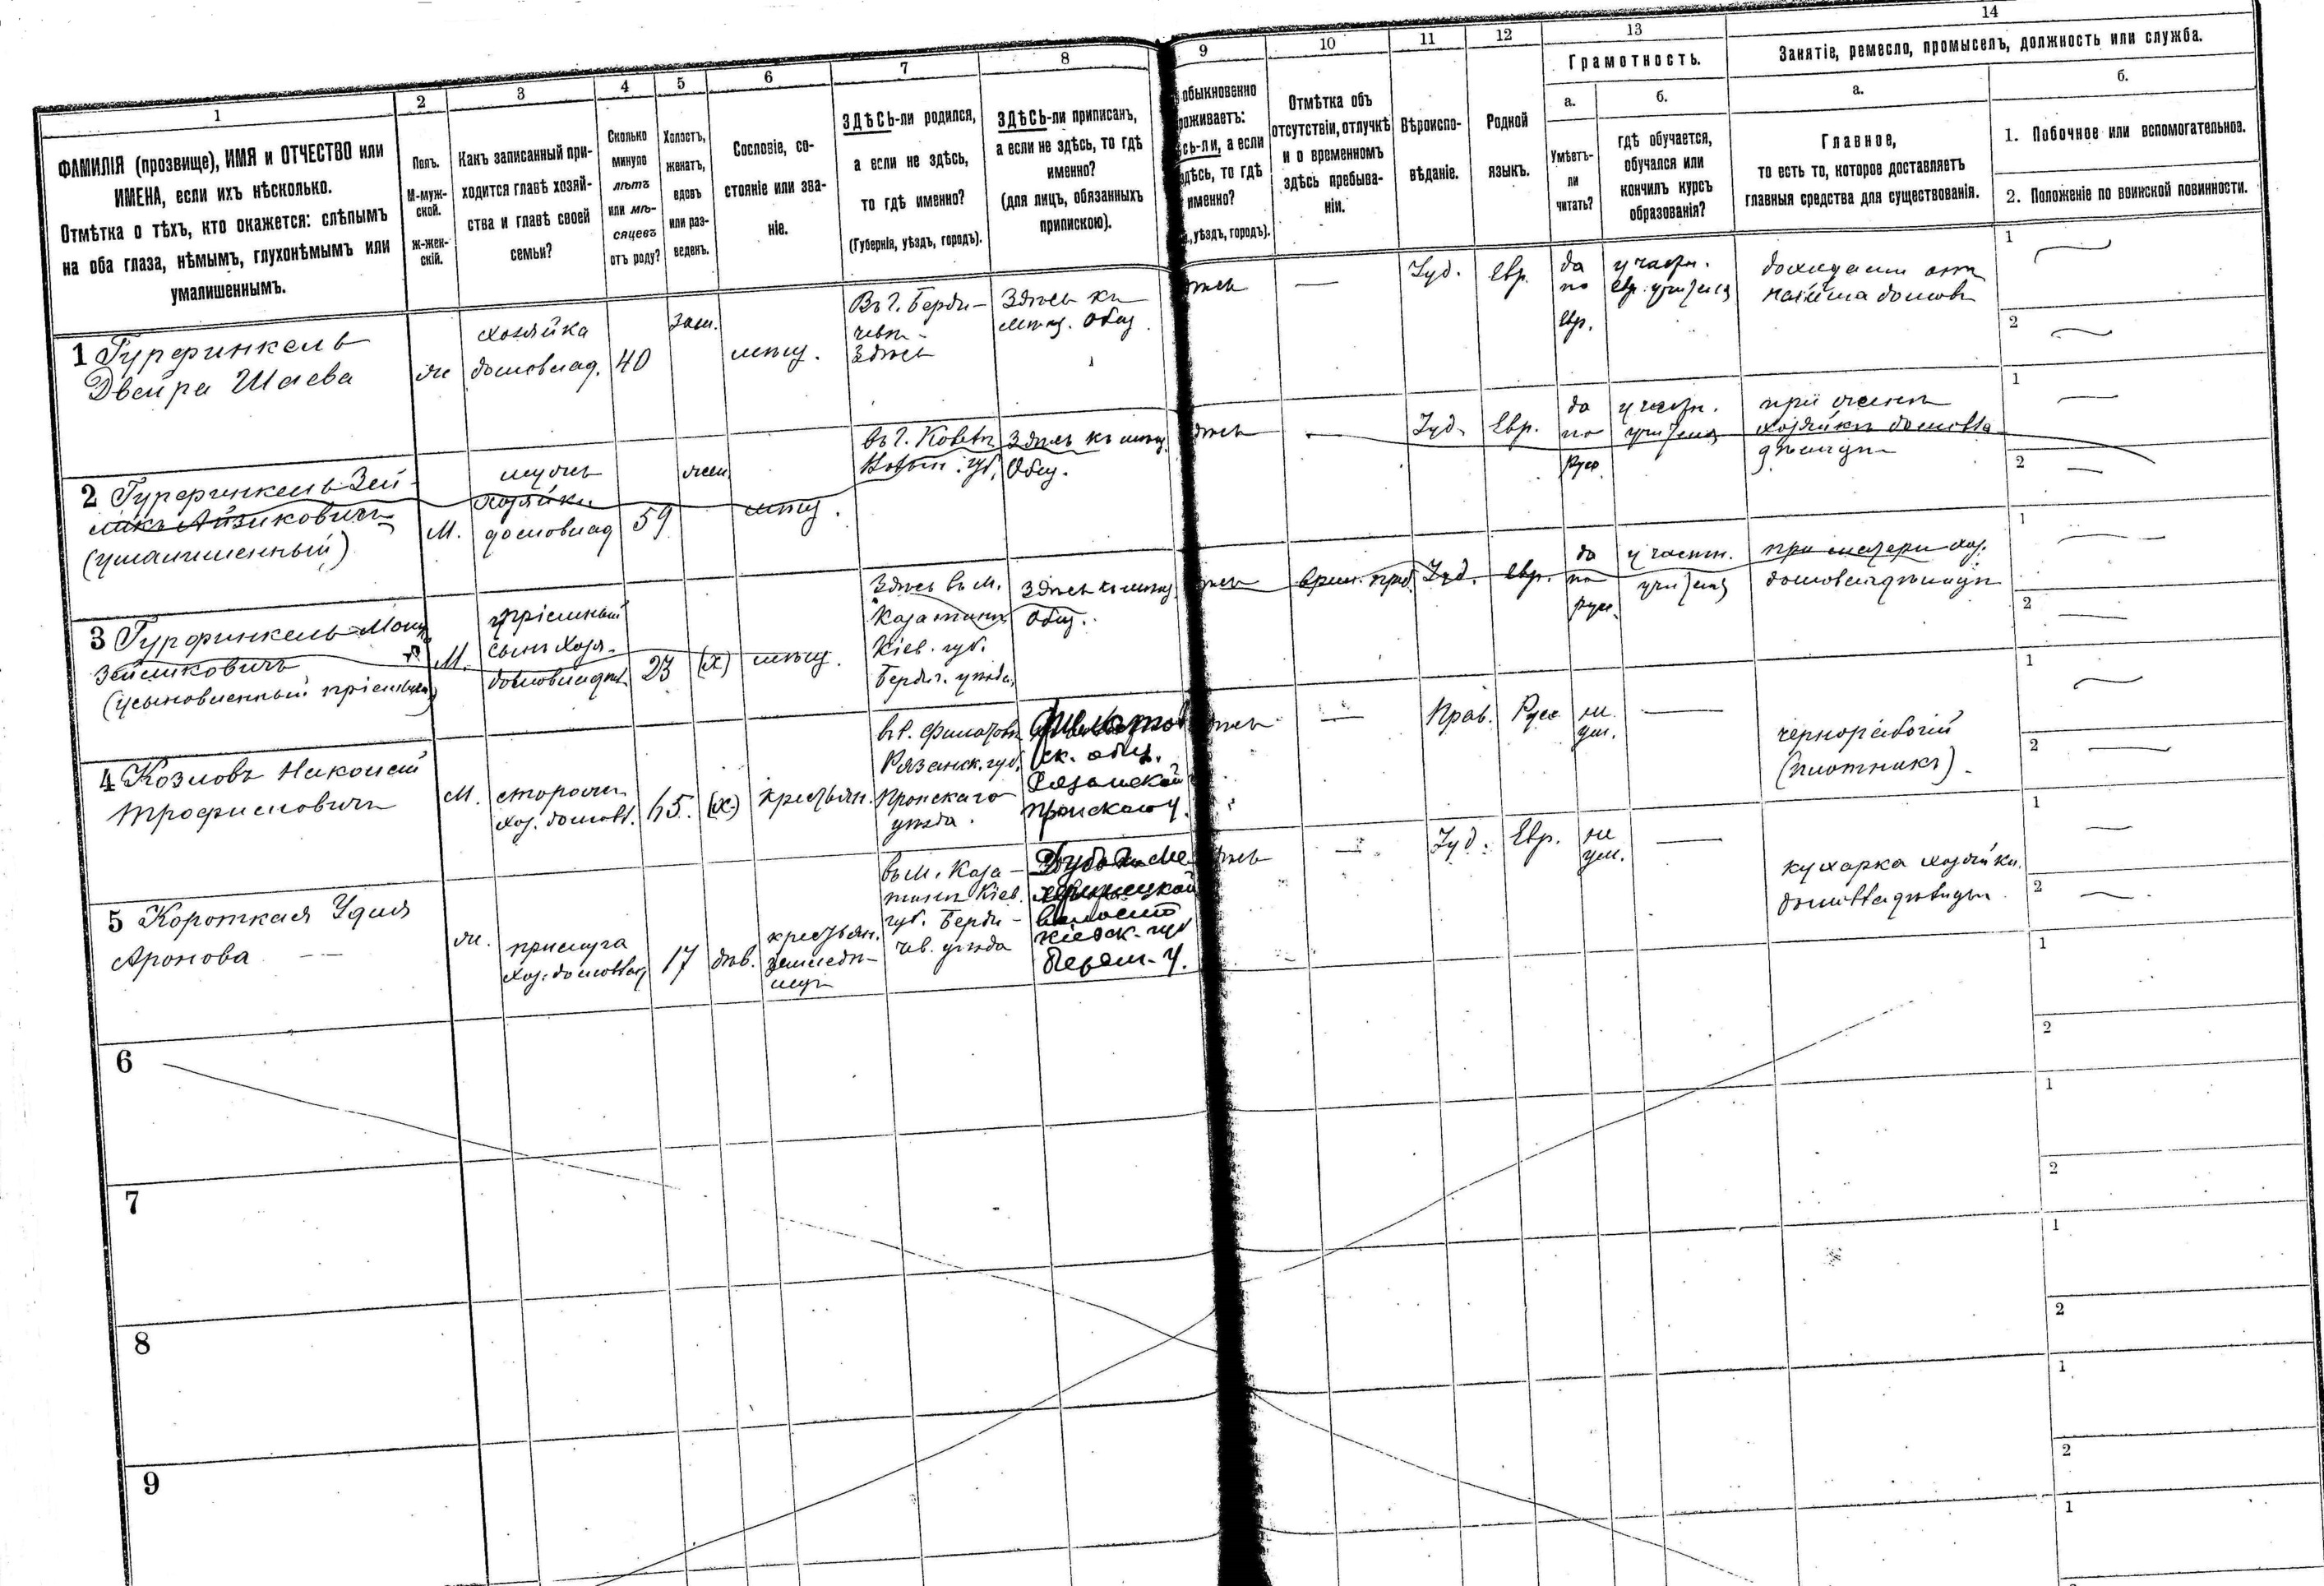 1
2
3
4
5
6
7
8
9
10
11
12
13
14
ФАМИЛІЯ (прозвище), ИМЯ и ОТЧЕСТВО или
ИМЕНА, если ихъ нѣсколько.
Отмѣтка о тѣхъ, кто окажется: слѣпымъ
на оба глаза, нѣмымъ, глухонѣмымъ или
умалишеннымъ.
Полъ.
М-муж-
ской.
Ж-жен-
скій.
Какъ записанный при-
ходится главѣ хозяй-
ства и главѣ своей
семьи?
Сколько
минуло
лѣтъ
или мѣ-
сяцевъ
отъ роду?
Холостъ,
женатъ,
вдовъ
или раз-
веденъ.
Сословіе, со-
стояніе или зва-
ніе.
ЗДѢСЬ-ли родился,
а если не здѣсь,
то гдѣ именно?
(Губернія, уѣздъ, городъ).
ЗДѢСЬ-ли приписанъ,
а если не здѣсь, то гдѣ
именно?
(для лицъ, обязанныхъ
припискою).
обыкновенно
роживаетъ:
сь-ли, а если
здѣсь, то гдѣ
именно?
уѣздъ, городъ).
Отмѣтка объ
отсутствіи, отлучкѣ
и о временномъ
здѣсь пребыва-
ніи.
Вѣроиспо-
вѣданіе.
Родной
языкъ.
Грамотность.
а.
Умѣетъ-
ли
читать?
б.
гдѣ обучается,
обучался или
кончилъ курсъ
образованія?
Занятіе, ремесло, промыселъ, должность или служба.
а.
Главное,
то есть то, которое доставляетъ
главныя средства для существованія.
б.
1. Побочное или вспомогательное.
2. Положеніе по воинской повинности.
1 Гурфинкель
Двейра Шаева
ж
хозяйка
домовлад.
40
Зам.
мѣщ.
Въ г. Берди-
чевѣ -
Здѣсь
Здѣсь къ
мѣщ. Общ.
—
Іуд.
Евр.
да
по
Евр.
у частн.
Евр. учителя
доходами отъ
найма домовъ
1
2
2 Гурфинкель Зей-
ликъ Айзиковичъ
(умалишенный)
М.
мужъ
хозяйки
домовлад
59
жен.
мѣщ.
въ г. Ковелѣ
Здѣсь къ мѣщ.
Общ.
—
Іуд.
Евр.
да
по
Рус.
у частн.
учителя
при женѣ
хозяйкѣ домовла
дѣлицѣ
1
2
3 Гурфинкель
Зейликовичъ
М.
пріемный
сынъ хозя.
23
(х)
мѣщ.
Здѣсь въ м.
Казатинѣ
Кіев. губ.
Бердич. уѣзда
Здѣсь къ мѣщ
Общ.
врем. преб.
Іуд.
Евр.
да
по
рус.
у частн.
учителя
при матери хоз.
домовладѣлицѣ
1
2
4 Козловъ Николай
Трофимовичъ
М.
сторожъ
хоз. домовл.
65.
(х)
крестьян.
Рязанск. губ.
Пронскаго
уѣзда.
ск. общ.
Рязанской
Пронскаго у.
—
Прав.
Русс
не
ум.
—
чернорабочій
(плотникъ).
1
2
5 Короткая Удля
Аронова
ж.
прислуга
хоз. домовлад
17
дѣв.
крестьян.
землед-
въ м. Каза-
тинѣ Кіев.
губ. Берди-
чев. уѣзда
волости
Кіевск. губ
—
Іуд.
Евр.
не
ум.
—
кухарка хозяйки
домовладѣлицы
1
2
6
1
2
7
1
2
8
1
2
9
1
2
1